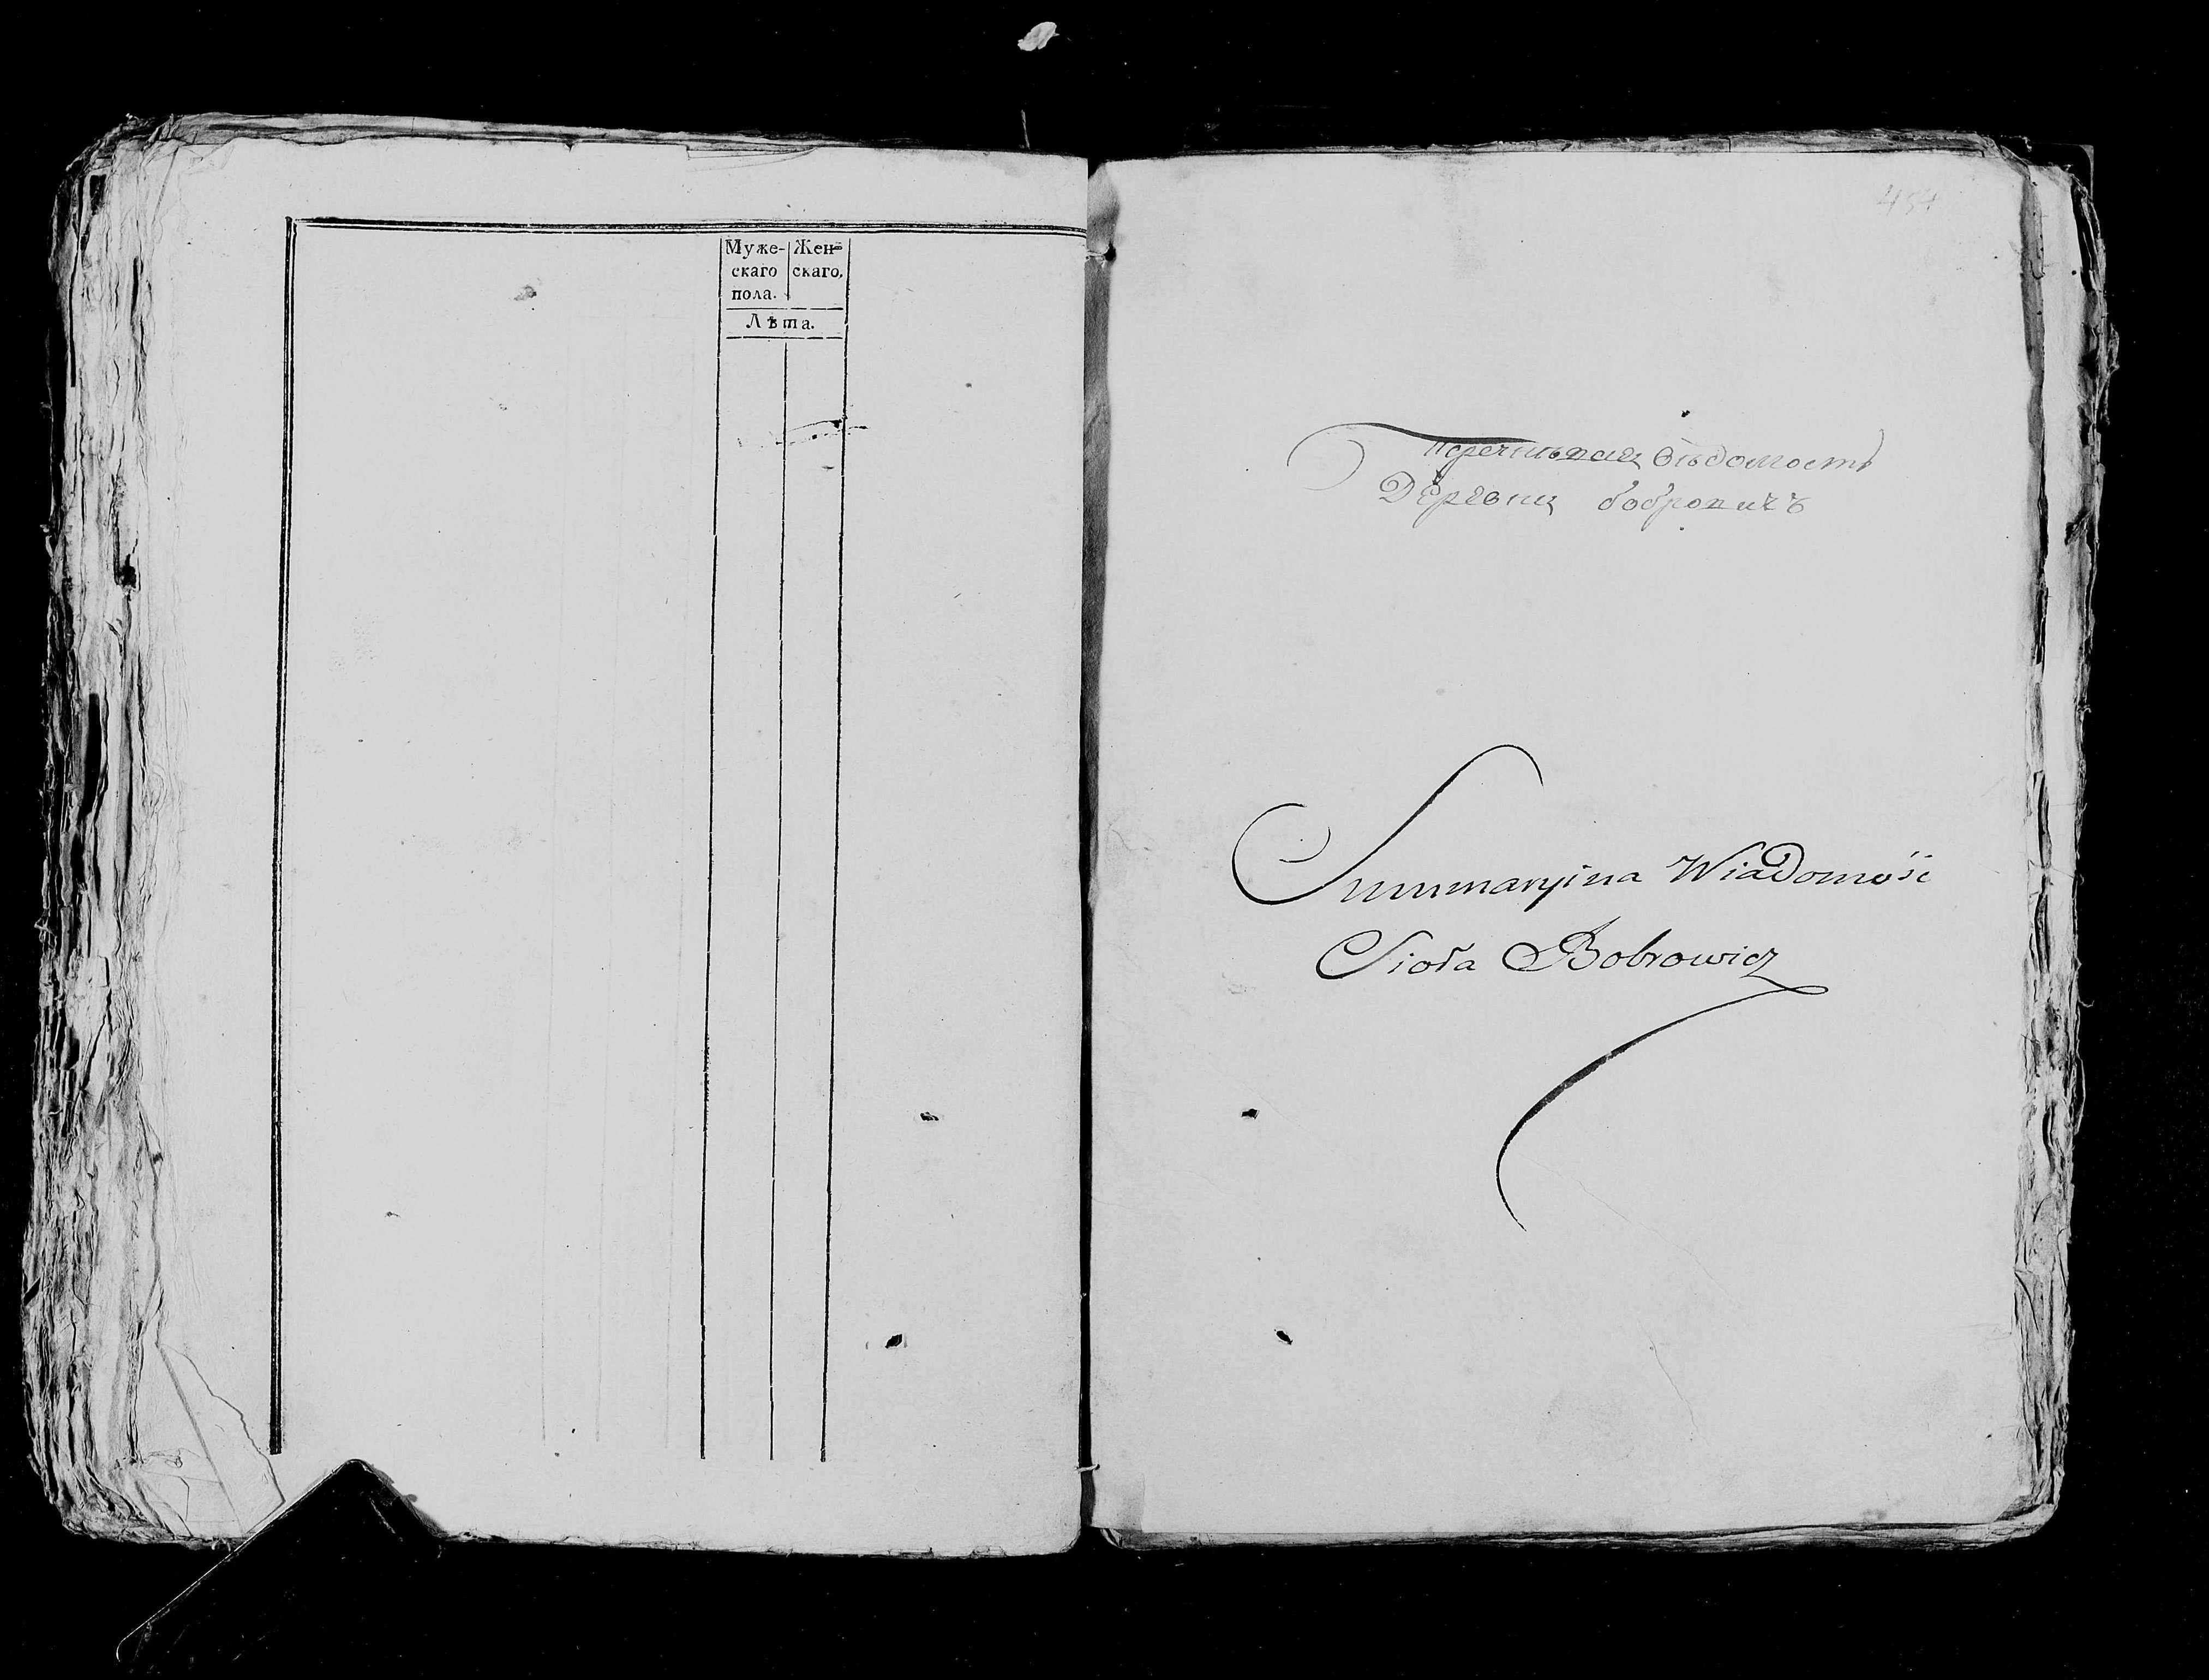 Муже- Жен-
скаго скаго,
пола.
Лѣта.
454
Перечнѣвая Вѣдомость
Деревни бобровичъ
Summaryina Wiadomość
Sioła Bobrowicz